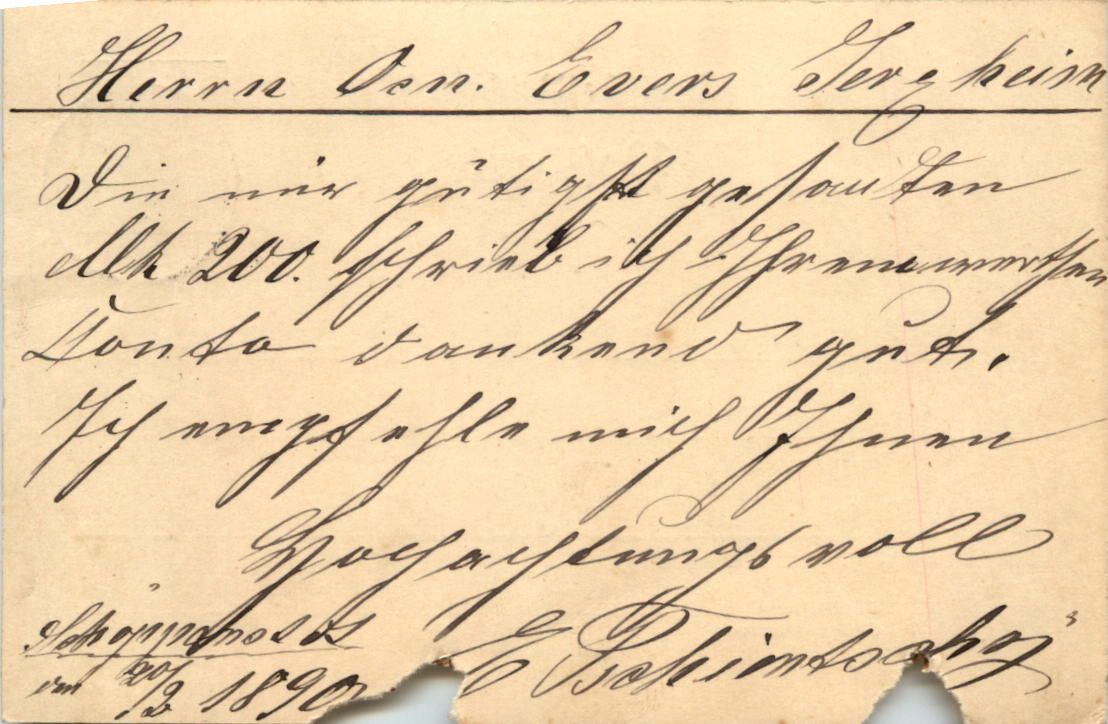 Herrn Osn. Evers Jerxheim
Die mir gütigst gesandten
Mk 200. schrieb ich Ihrem werthen
Conto dankend gut.
Ich empfehle mich Ihnen
Hochachtungsvoll
den 20/2 1890